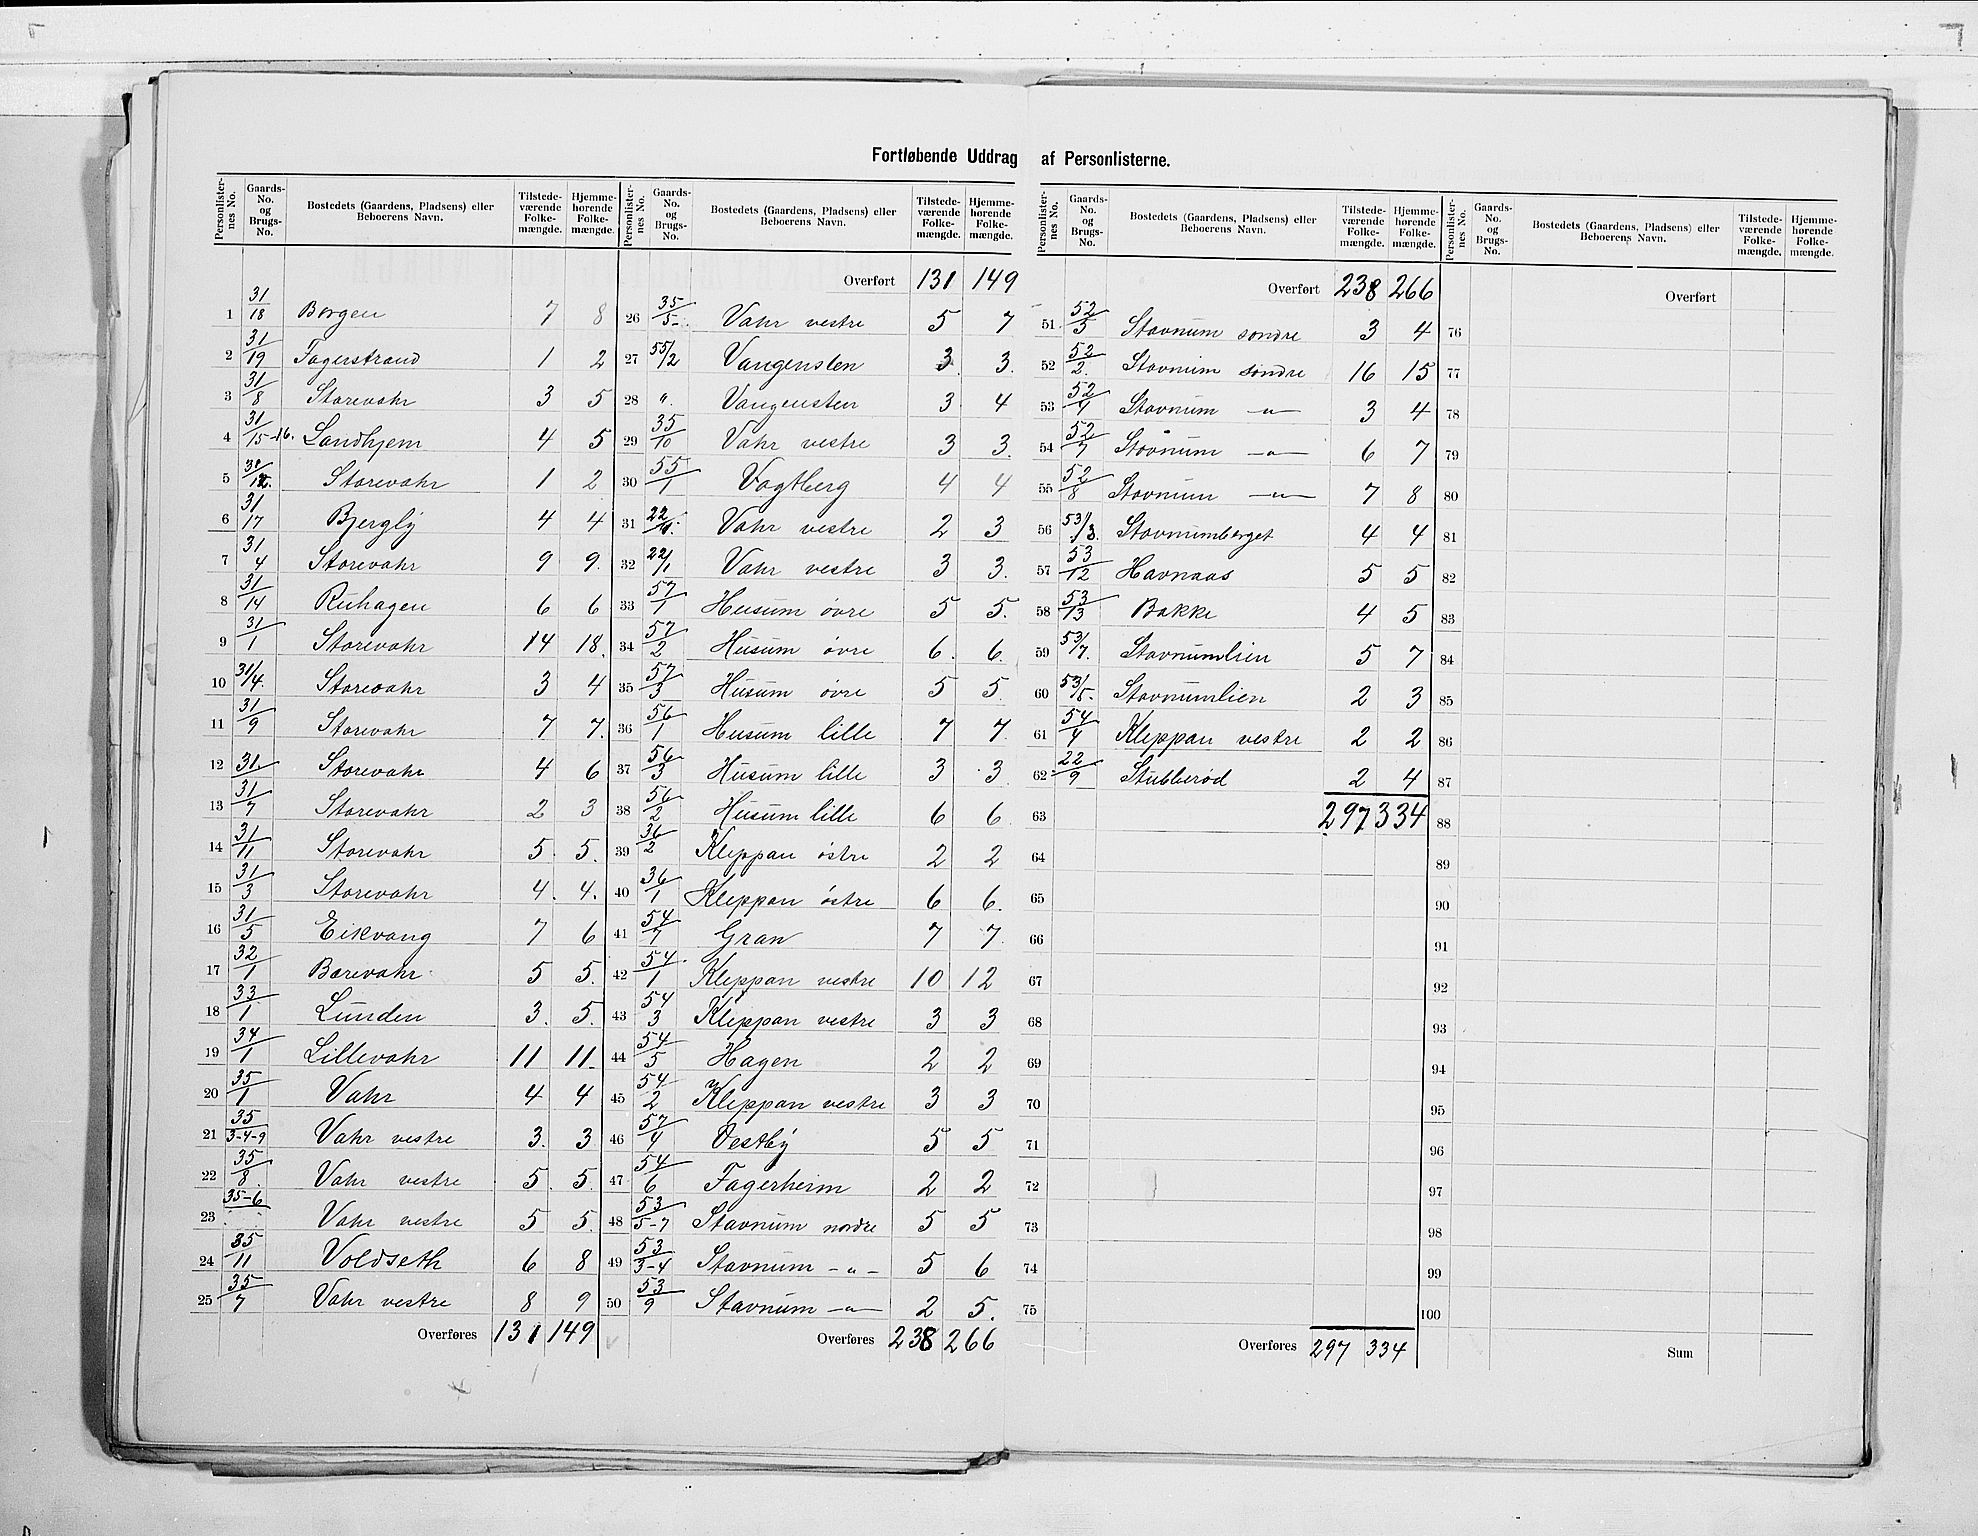 Fortløbende Uddrag af Personlisterne.
Personlisternes No. Gaards-No. og Brugs-No. Bostedets (Gaardens, Pladsens) eller Beboerens Navn. Tilstedeværende Folkemængde. Hjemmehørende Folkemængde.
1 31/18 Borgen 7 8
2 31/19 Fagerstrand 1 2
3 31/8 Storevahr 3 5
4 31/15-16. Landhjem 4 5
5 Storevahr 1 2
6 31/17 Bjergly 4 4
7 31/4 Storevahr 9 9.
8 31/14 Ruhagen 6 6
9 31/1 Storevahr 14 18.
10 31/4. Storevahr 3 4
11 31/9 Storevahr 7 7.
12 31. Storevahr 4 6
13 31/7 Storevahr 2 3
14 31/11 Storevahr 5. 5.
15 31/3 Storevahr 4. 4.
16 31/5 Eikvang 7 6
17 32/1 Barevahr 5 5.
18 33/1 Lunden 3. 5.
19 34/1 Lillevahr 11 11.
20 35/1 Vahr 4 4
21 35/3-4-9 Vahr vestre 3. 3
22 35/8. Vahr vestre 5. 5.
23 35-6 Vahr vestre 5 5.
24 35/11 Voldseth 6 8
25 35/7 Vahr vestre 8 9
Overføres 131 149
Personlisternes No. Gaards-No. og Brugs-No. Bostedets (Gaardens, Pladsens) eller Beboerens Navn. Tilstedeværende Folkemængde. Hjemmehørende Folkemængde.
Overført 131 149
26 35/5 Vahr vestre 5 7
27 55/2 Vangensten 3. 3.
28 " Vangensten 3 4
29 35/10 Vahr vestre 3 3.
30 55/1 Vagtberg 4 4
31 Vahr vestre 2 3
32 22/1 Vahr vestre 3 3.
33 57/1 Husum øvre 5 5.
34 57/2 Husum øvre 6. 6.
35 57/3 Husum øvre 5 5.
36 56/1 Husum lille 7 7
37 56/3 Husum lille 3 3.
38 56/2 Husum lille 6 6.
39 36/2 Kleppan østre 2 2
40 36/1 Kleppan østre 6 6.
41 54/7 Gran 7 7.
42 54/1 Kleppan vestre 10 12
43 54/3 Kleppan vestre 3 3
44 54/5 Hagen 2 2
45 54/2 Kleppan vestre 3 3
46 57/4 Vestby 5 5
47 54/6 Fagerheim 2 2
48 53/5-7 Stavnum nordre 5 5
49 53/3-4 Stavnum -„- 5 6
50 53/9 Stavnum -„- 2 5.
Overføres 238 266
Personlisternes No. Gaards-No. og Brugs-No. Bostedets (Gaardens, Pladsens) eller Beboerens Navn. Tilstedeværende Folkemængde. Hjemmehørende Folkemængde.
Overført 238 266
51 52/5 Stavnum søndre 3 4
52 52/2. Stavnum søndre 16 15
53 52/4 Stavnum -„- 3 4
54 52/7 Stavnum -„- 6 7
55 52/8 Stavnum -„- 7 8
56 53/3. Stavnumberget 4 4
57 53/12 Havnaas 5 5
58 53/13 Bakke 4 5
59 53/7. Stavnumlien 5 7
60 Stavnumlien 2 3
61 54/4 Kleppan vestre 2 2
62 22/9 Stubberød 2 4
63 297 334
64
65
66
67
68
69
70
71
72
73
74
75
Overføres 297 334
Personlisternes No. Gaards-No. og Brugs-No. Bostedets (Gaardens, Pladsens) eller Beboerens Navn. Tilstedeværende Folkemængde. Hjemmehørende Folkemængde.
Overført
76
77
78
79
80
81
82
83
84
85
86
87
88
89
90
91
92
93
94
95
96
97
98
99
100
Sum